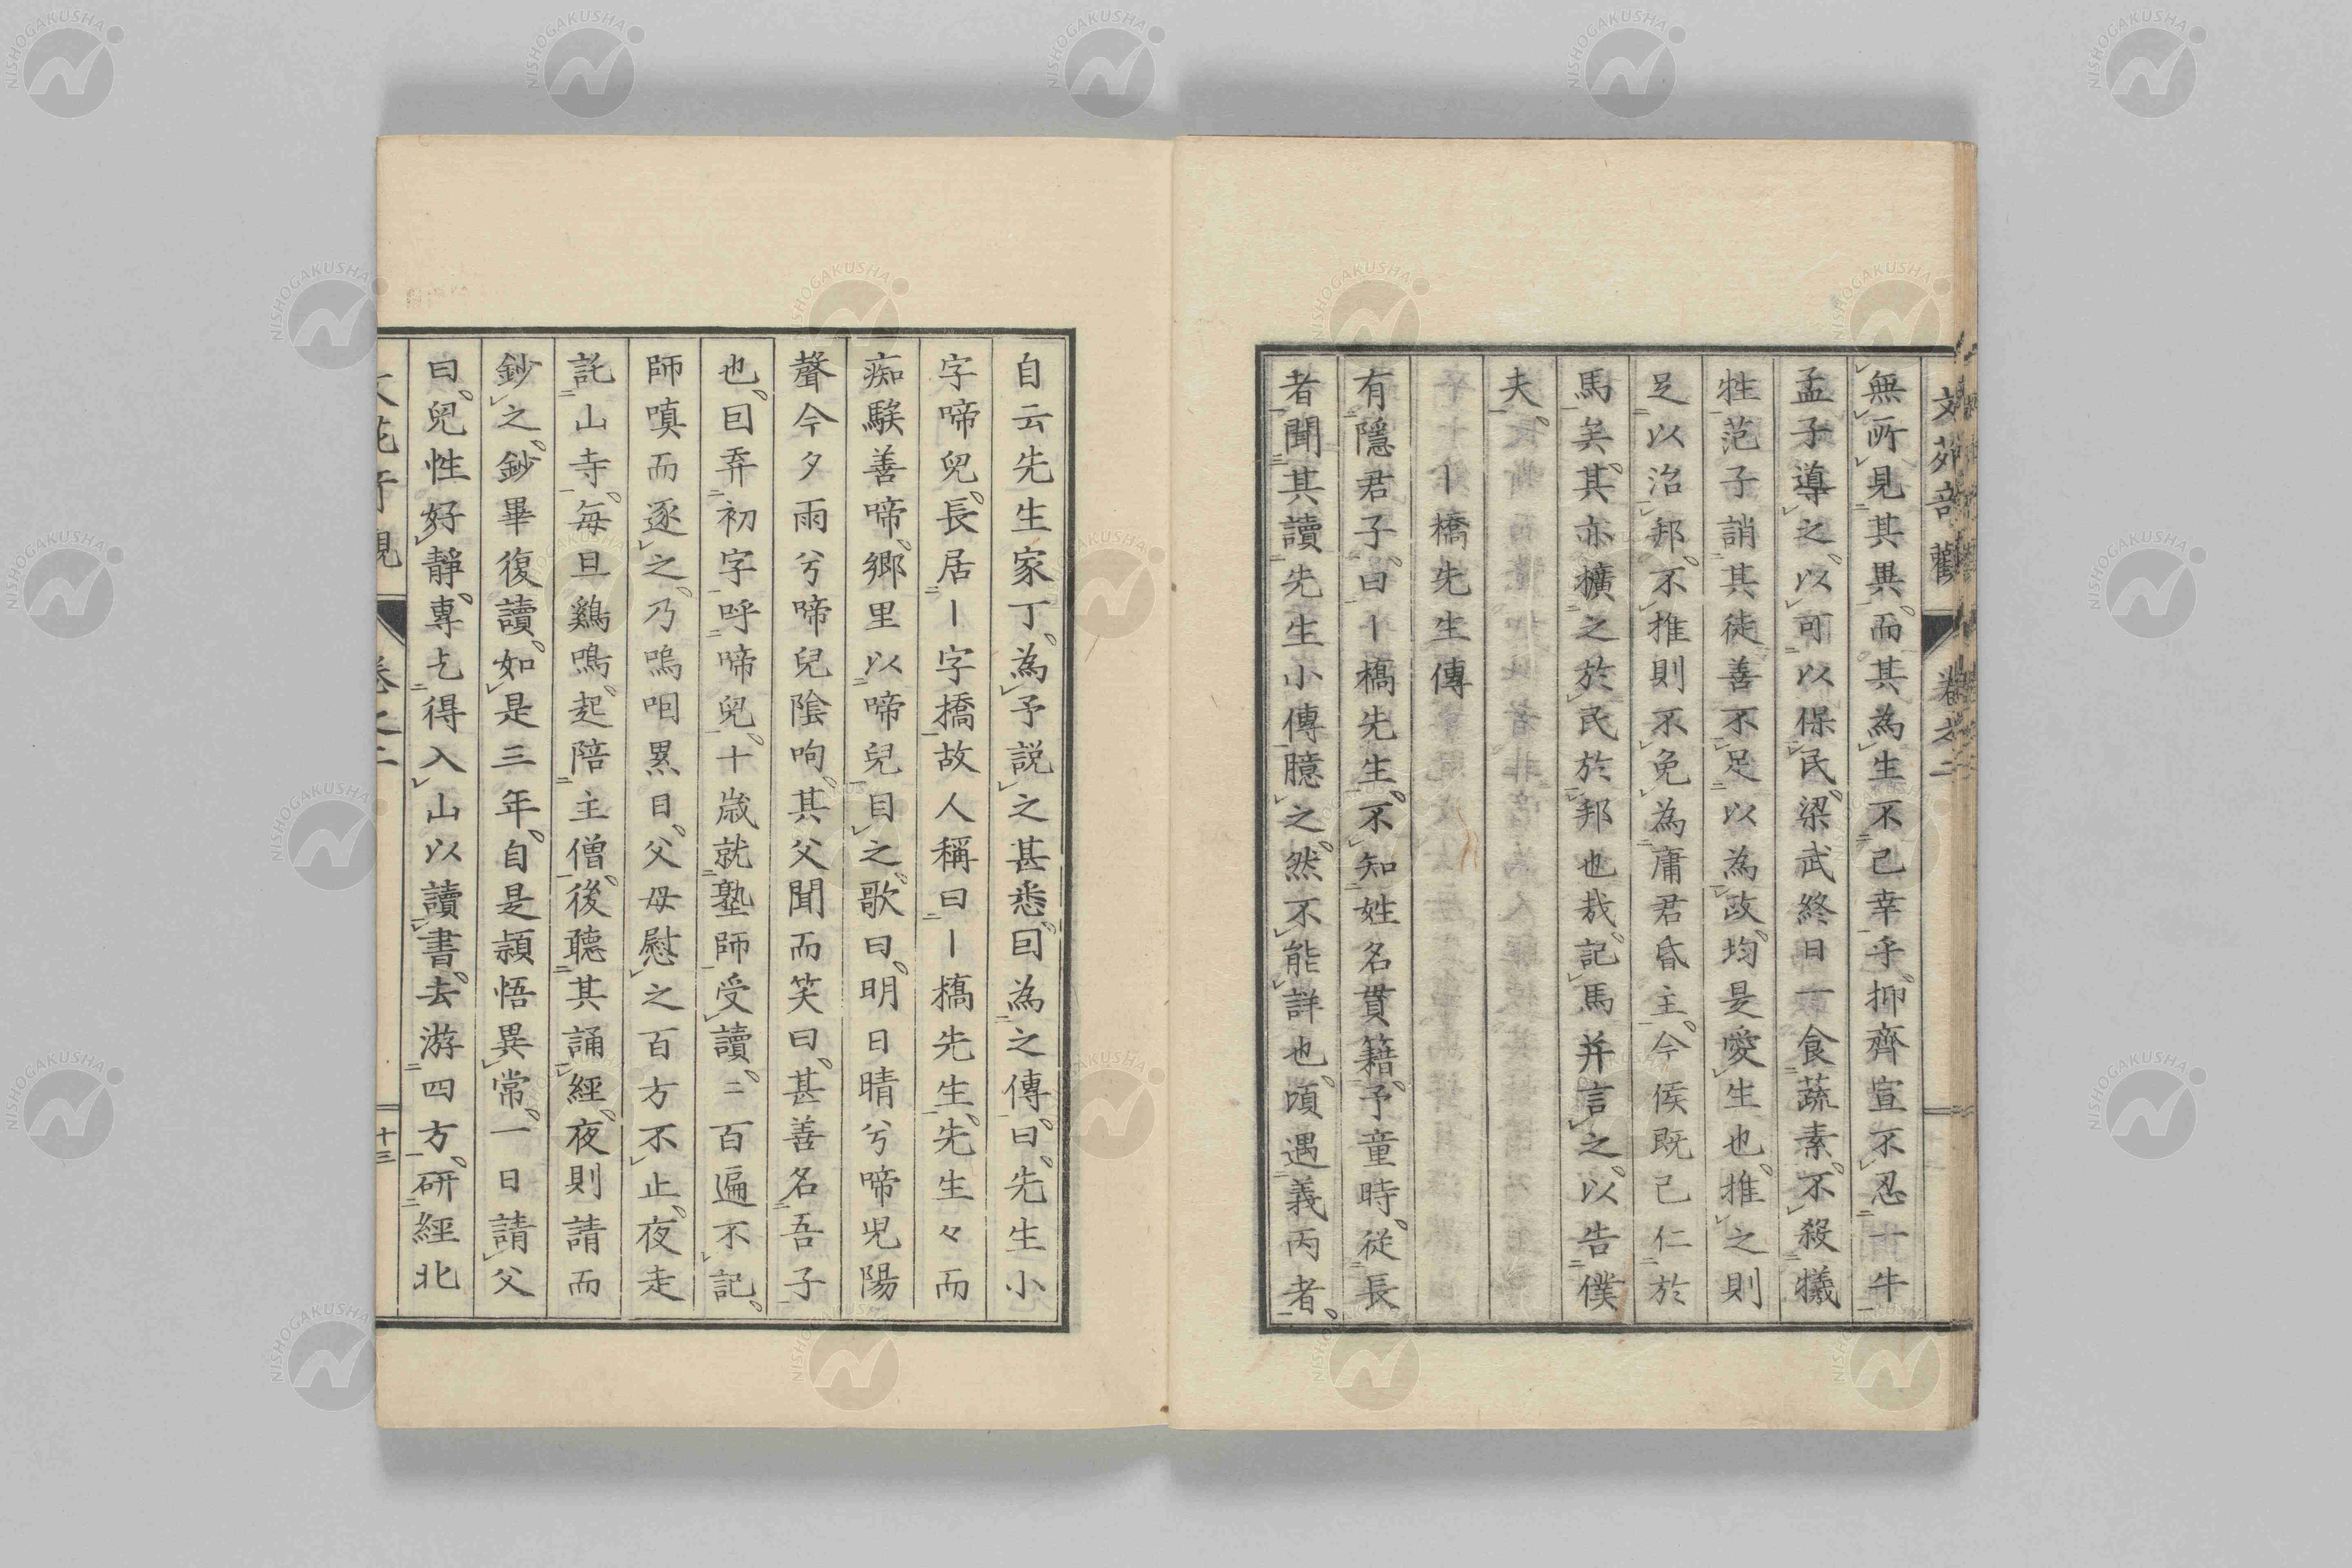 文苑奇觀 卷之二
無所見其異而其為生不已幸乎抑齊宣不忍一牛
孟子導之以可以保民梁武終日一食蔬素不殺犧
牲范子誚其徒善不足以為政均是愛生也推之則
足以治邦不推則不免為庸君昏主今侯既已仁於
馬矣其亦擴之於民於邦也哉記馬并言之以告僕
夫
丨橋先生傳
有隱君子曰丨橋先生不知姓名貫籍予童時從長
者聞其讀先生小傳臆之然不能詳也頃遇義丙者
自云先生家丁為予説之甚悉囙為之傳曰先生小
字啼兒長居丨字橋故人稱曰丨橋先生先生々而
痴騃善啼鄉里以啼兒目之歌曰明日晴兮啼児陽
聲今夕雨兮啼兒陰呴其父聞而笑曰甚善名吾子
也囙弄初字呼啼兒十歲就塾師受讀二百遍不記
師嗔而逐之乃嗚咽累日父母慰之百方不止夜走
託山寺每旦鷄鳴起陪主僧後聽其誦經夜則請而
鈔之鈔畢復讀如是三年自是頴悟異常一日請父
曰兒性好靜專乞得入山以讀書去游四方研經北
卷之二 十三